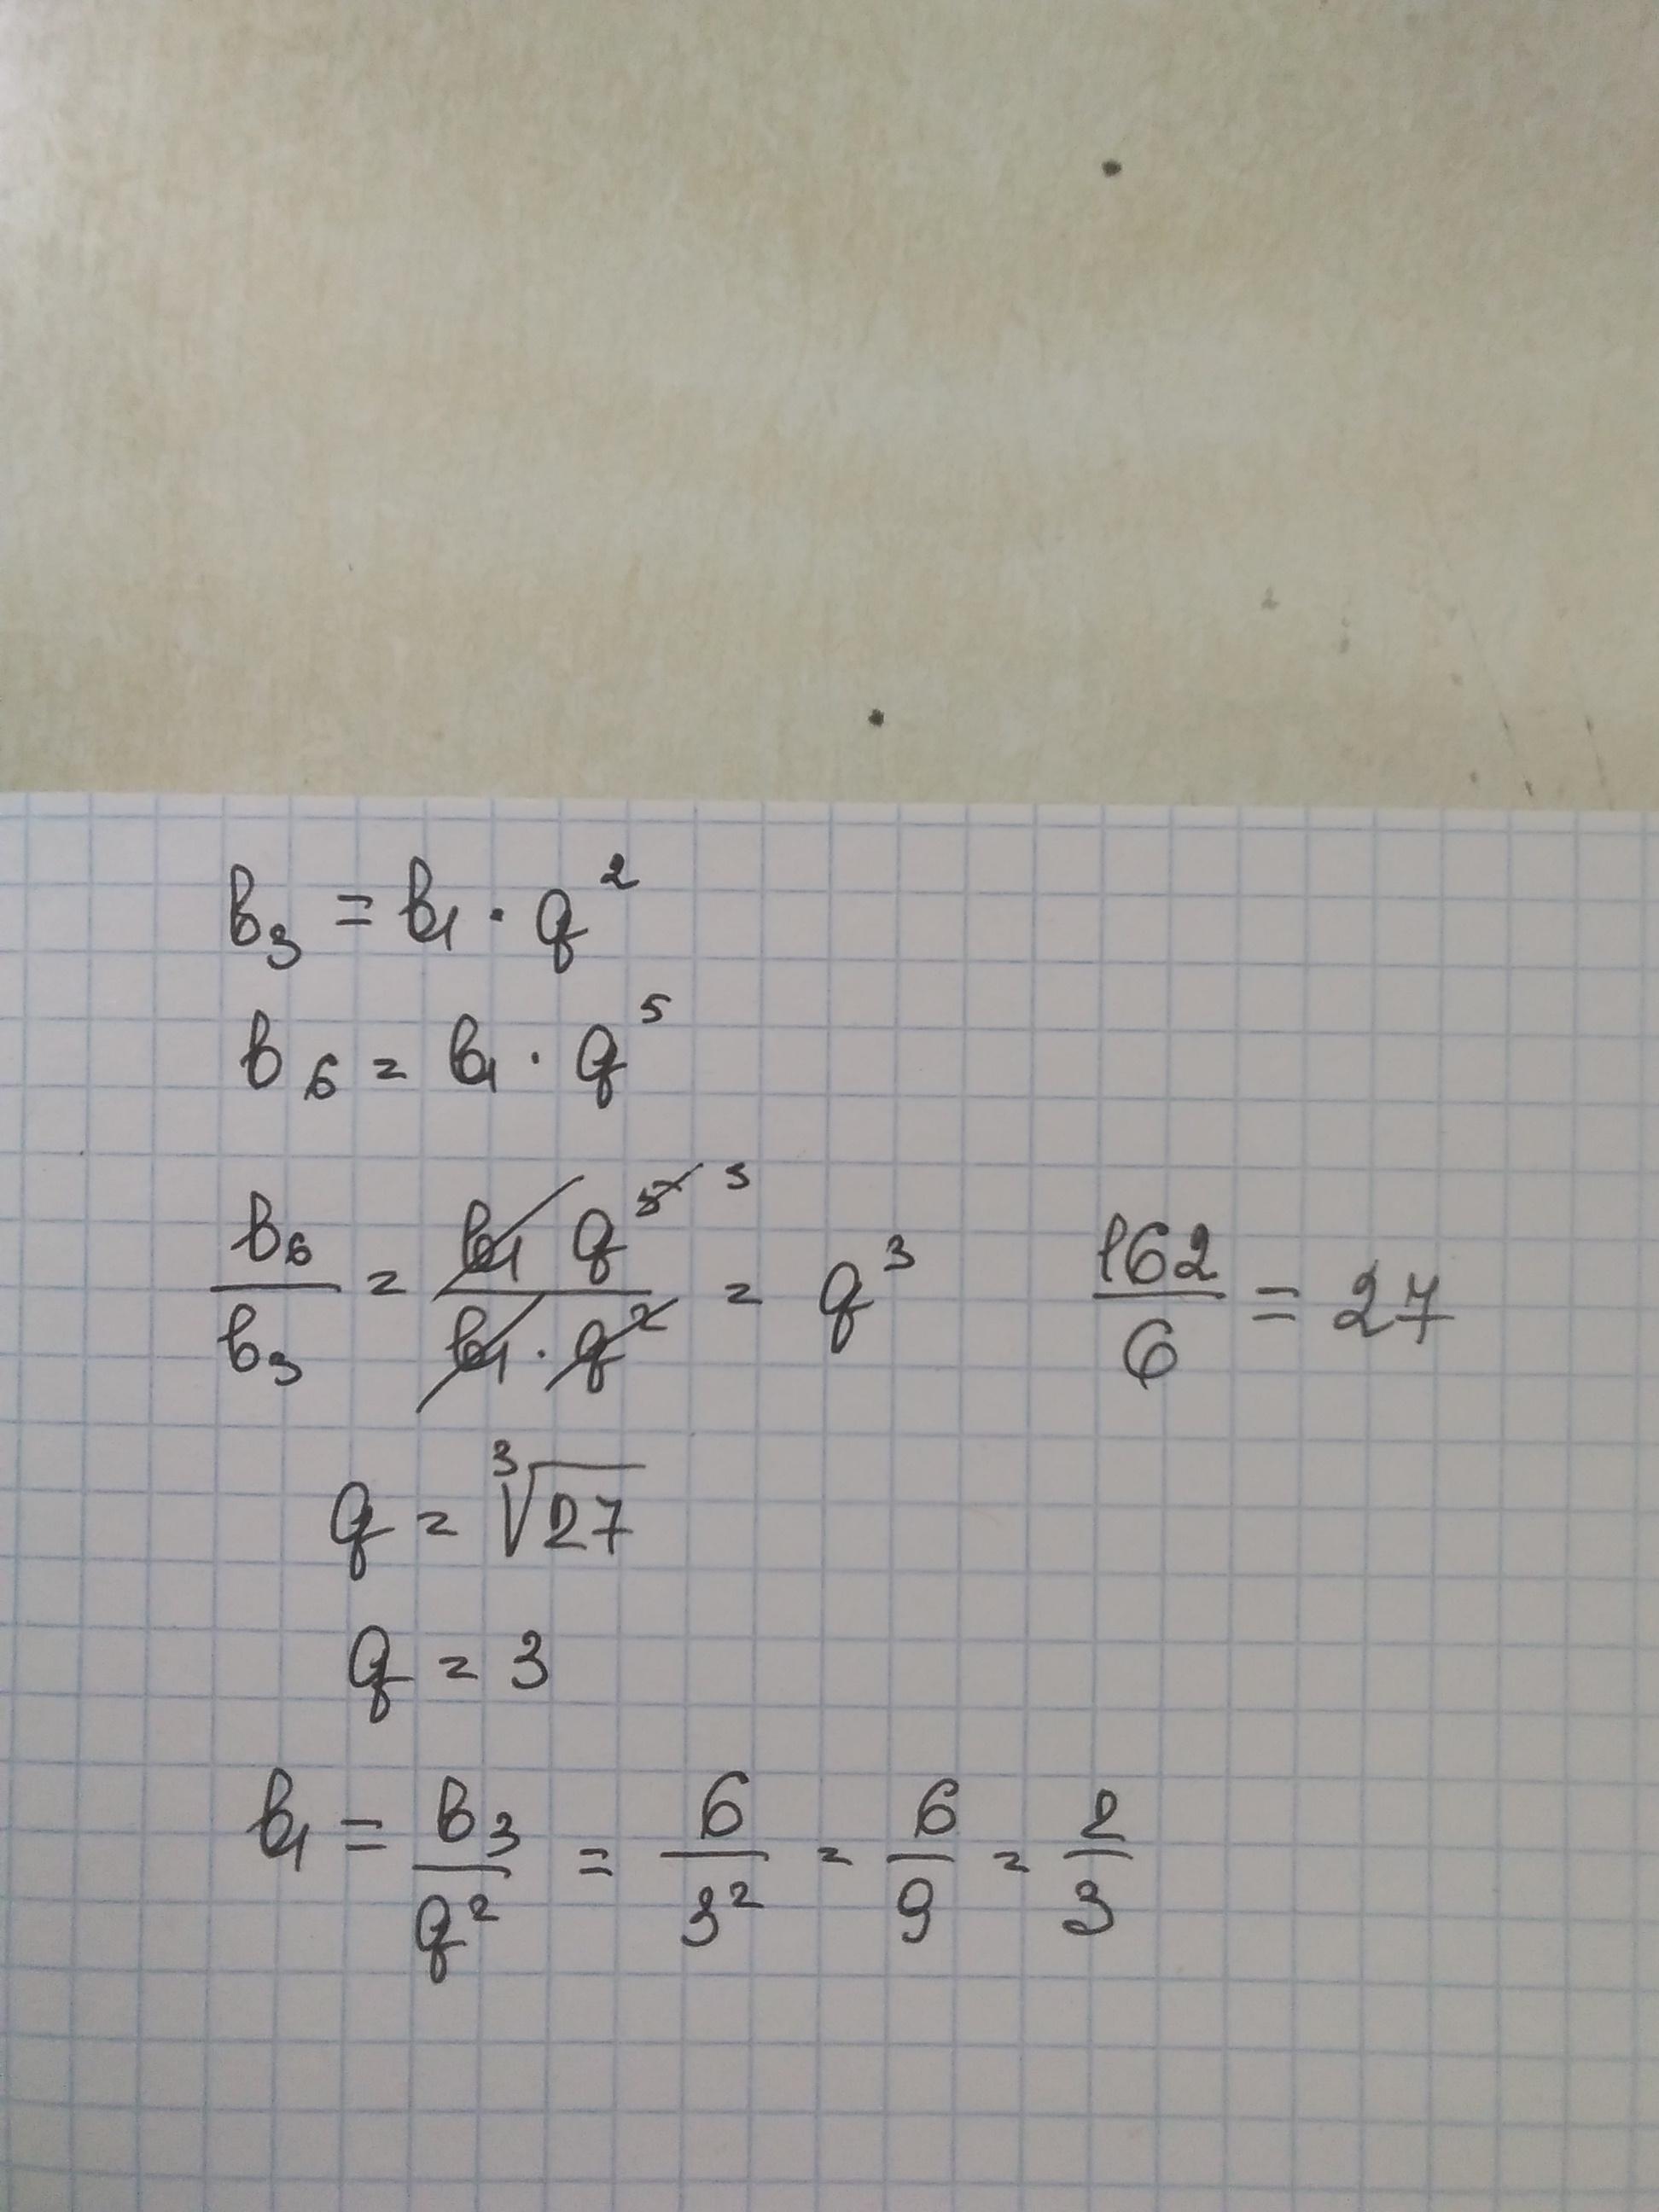 b₃ = b₁ · q²
b₆ = b₁ · q⁵
b₆/b₃ = b₁ q⁵ ³/b₁ · q² = q³ 162/6 = 27
q = ³√27
q = 3
b₁ = b₃/q² = 6/3² = 6/9 = 2/3